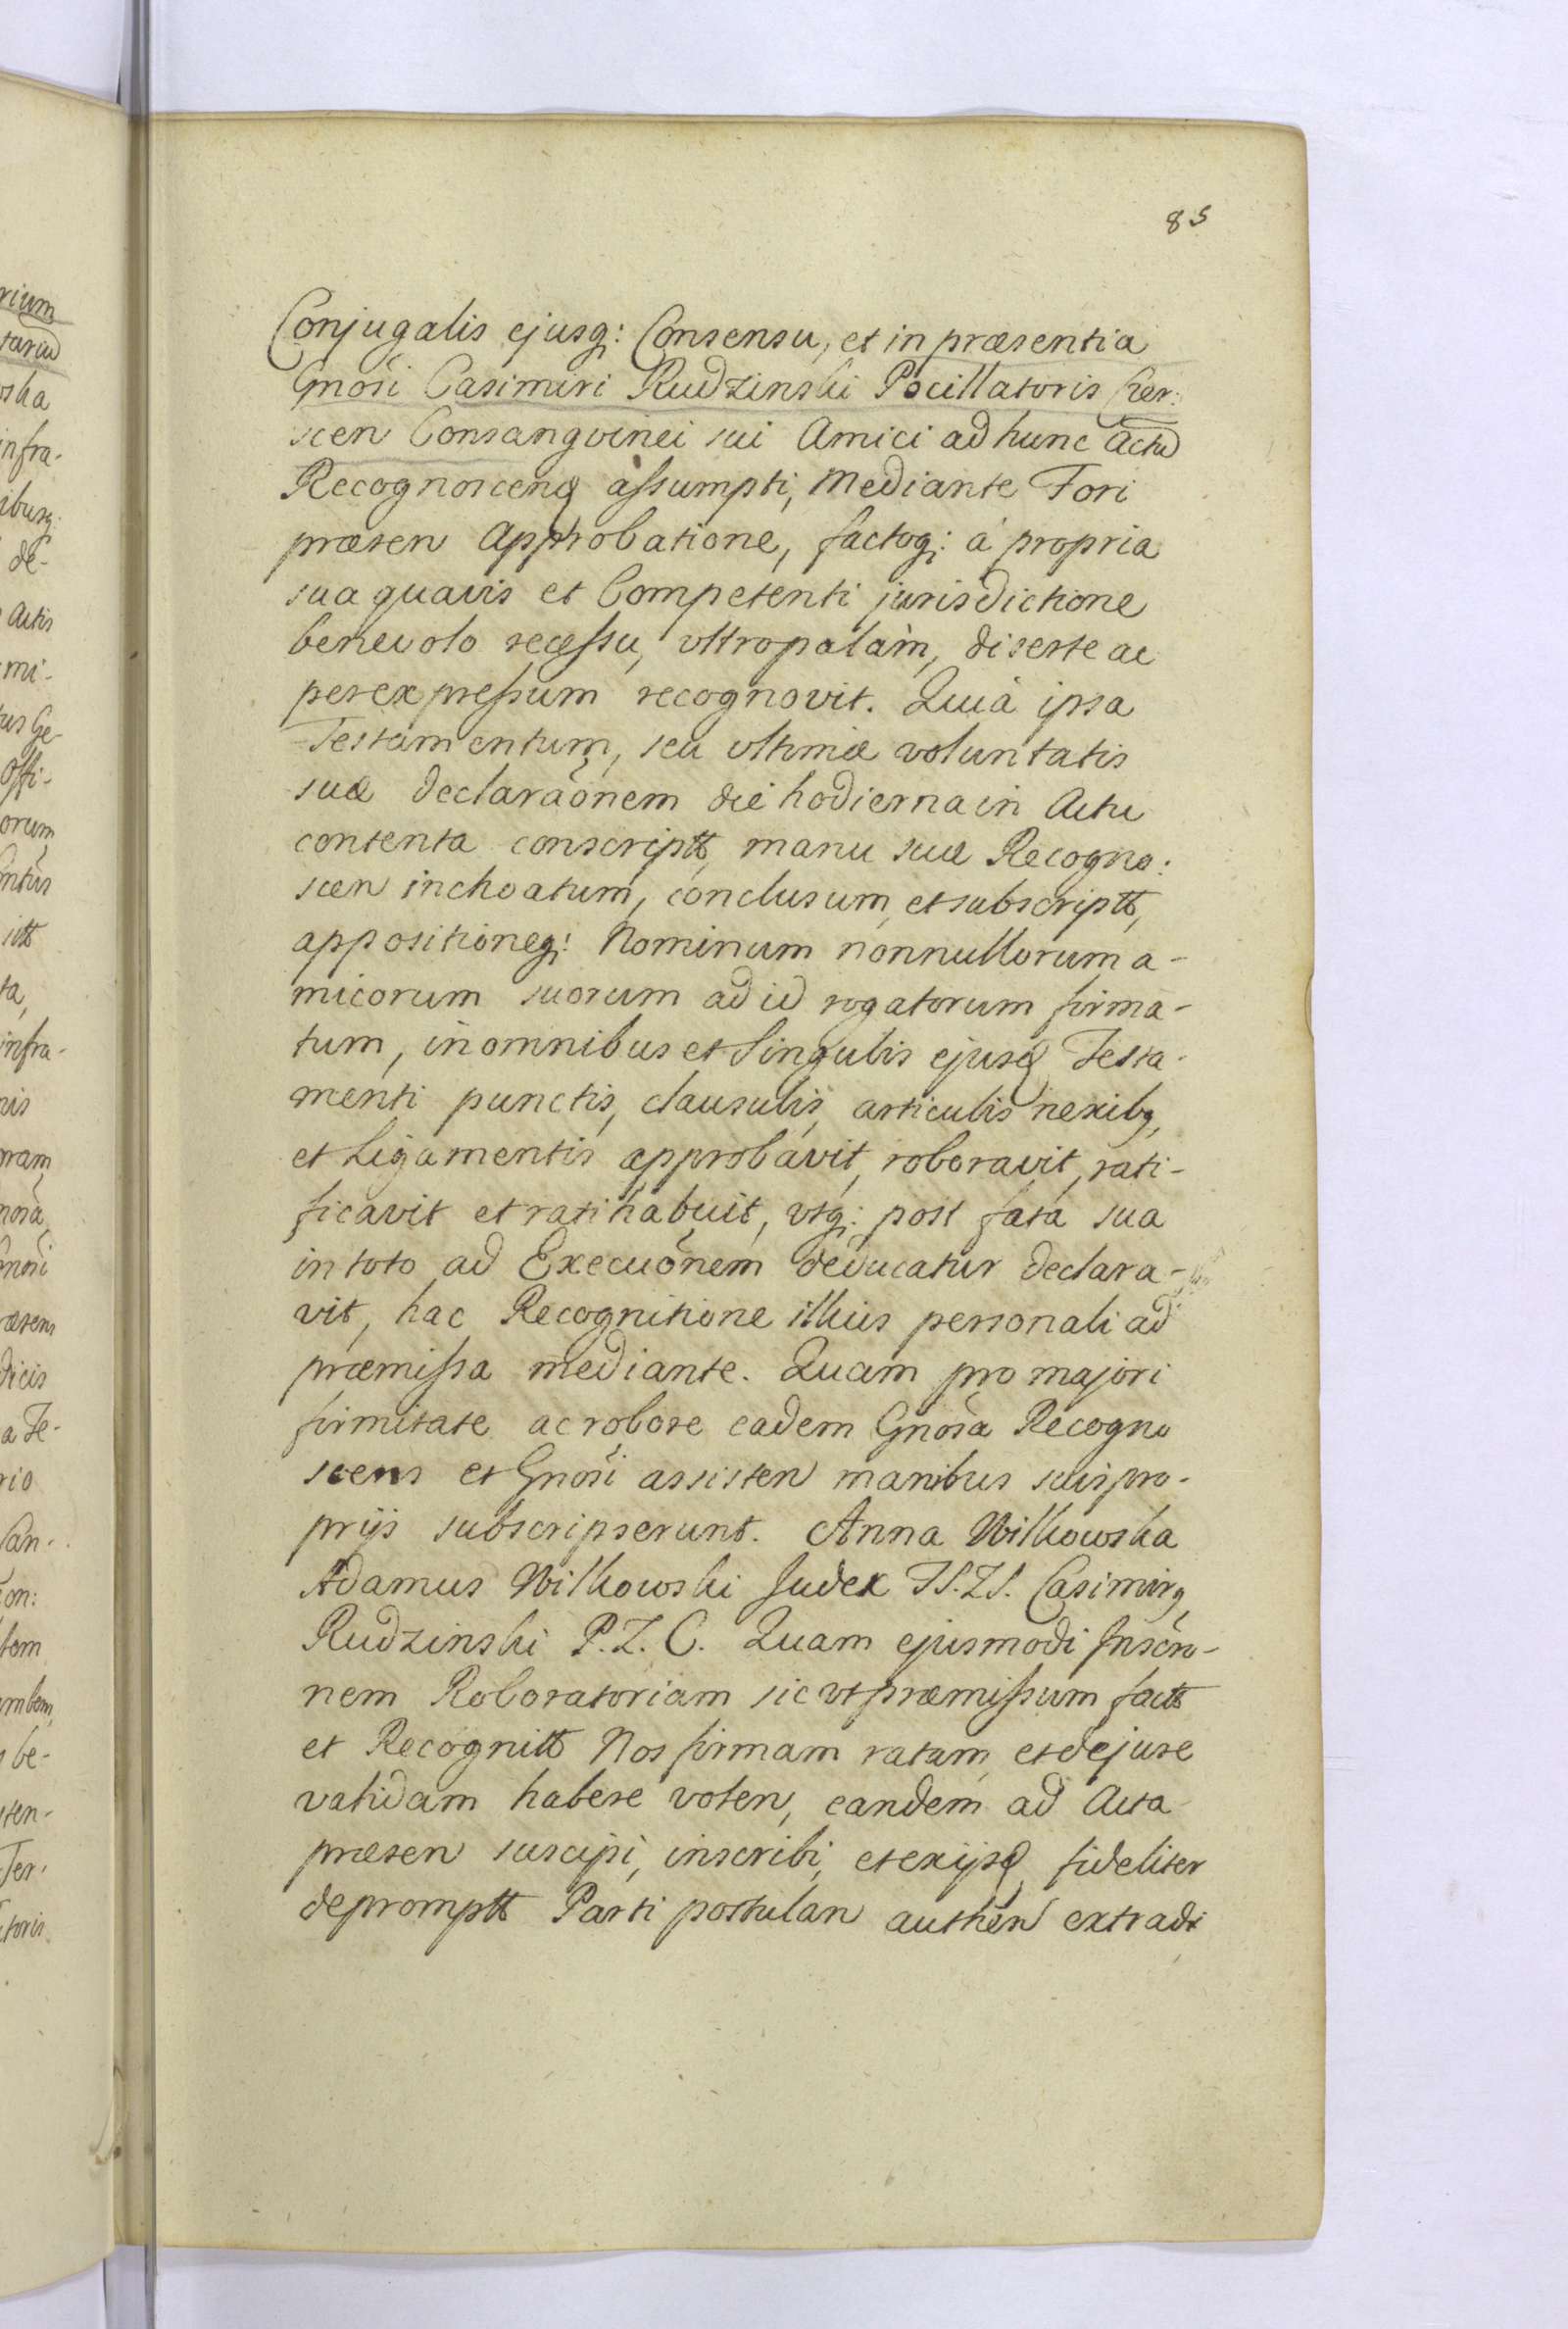 85
Conjugalis ejusq: Consensu, et in præsentia
Gnosi Casimiri Rudzinski Pocillatoris Cher:
scen Consangvinei sui Amici ad hunc Actu
Recognoscend assumpti, Mediante Fori
præsen Approbatione, factoq: á propria
sua quavis et Competenti jurisdictione
benevolo recessu, ultro palàm, diserte ac
per expressum recognovit. Quià ipsa
Testamentum, seu ultimæ voluntatis
suæ declaraõnem die hodierna in Actu
contenta conscriptt, manu suæ Recogno:
scen inchoatum, conclusum, et subscriptt,
appositioneq: Nominum nonnullorum a-
micorum suorum ad id rogatorum firma-
tum, in omnibus et Singulis ejusd Testa-
menti punctis, clausulis, articulis nexibq,
et Ligamentis approbavit, roboravit, rati-
ficavit et ratihabuit, utq: post fata sua
in toto ad Execuõnem deducatur declara-
vit, hac Recognitione illius personali ad
præmissa mediante. Quam pro majori
firmitate ac robore eadem Gnosa Recogno
scens et Gnosi assisten manibus suis pro-
prijs subscripserunt. Anna Wilkowska
Adamus Wilkowski Judex Casimirq
Rudzinski P. Z. C. Quam ejusmodi Inscrõ-
nem Roboratoriam sic ut præmissum factt
et Recognitt Nos firmam ratam, et de jure
validam habere volen, eandem ad Acta
præsen suscipi, inscribi, et ex ijsd fideliter
depromptt Parti postulan authen extradi
rium
tariu
ska
infra-
ibusq:
de-
Actis
mi-
us Ge-
Offi-
orum
sitt
ta,
infra-
nis
nosa
Gnosi
æsens
dicis
a Te-
rio
Can-
on:
be-
sten-
Ter-
ctoris